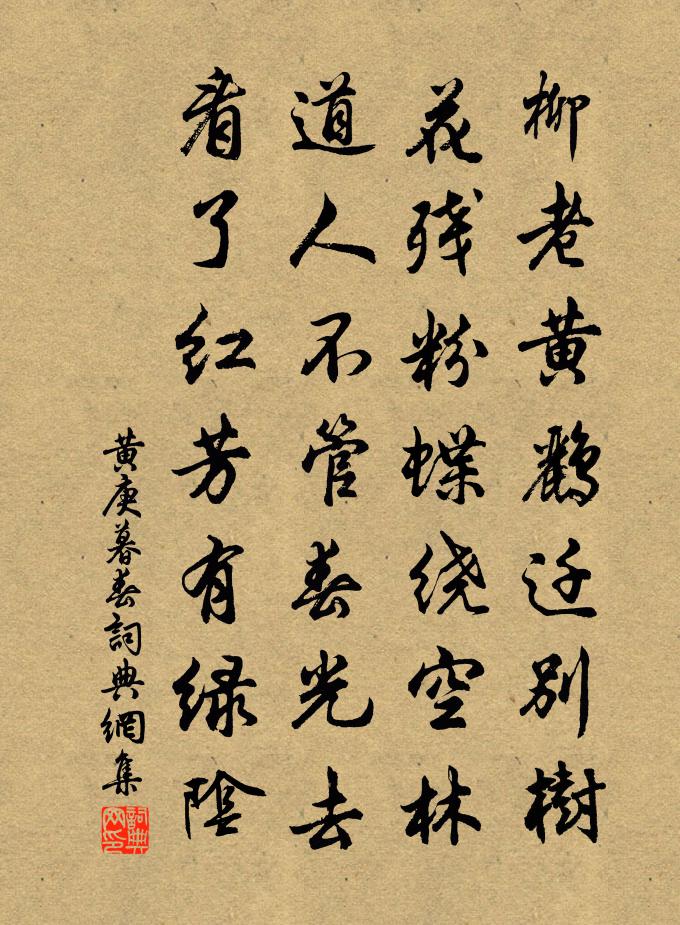 柳老黄鹂迁别树
花残粉蝶绕空林
道人不管春光去
看了红芳有绿阴
黄庚暮春詞典網集
詞典网印